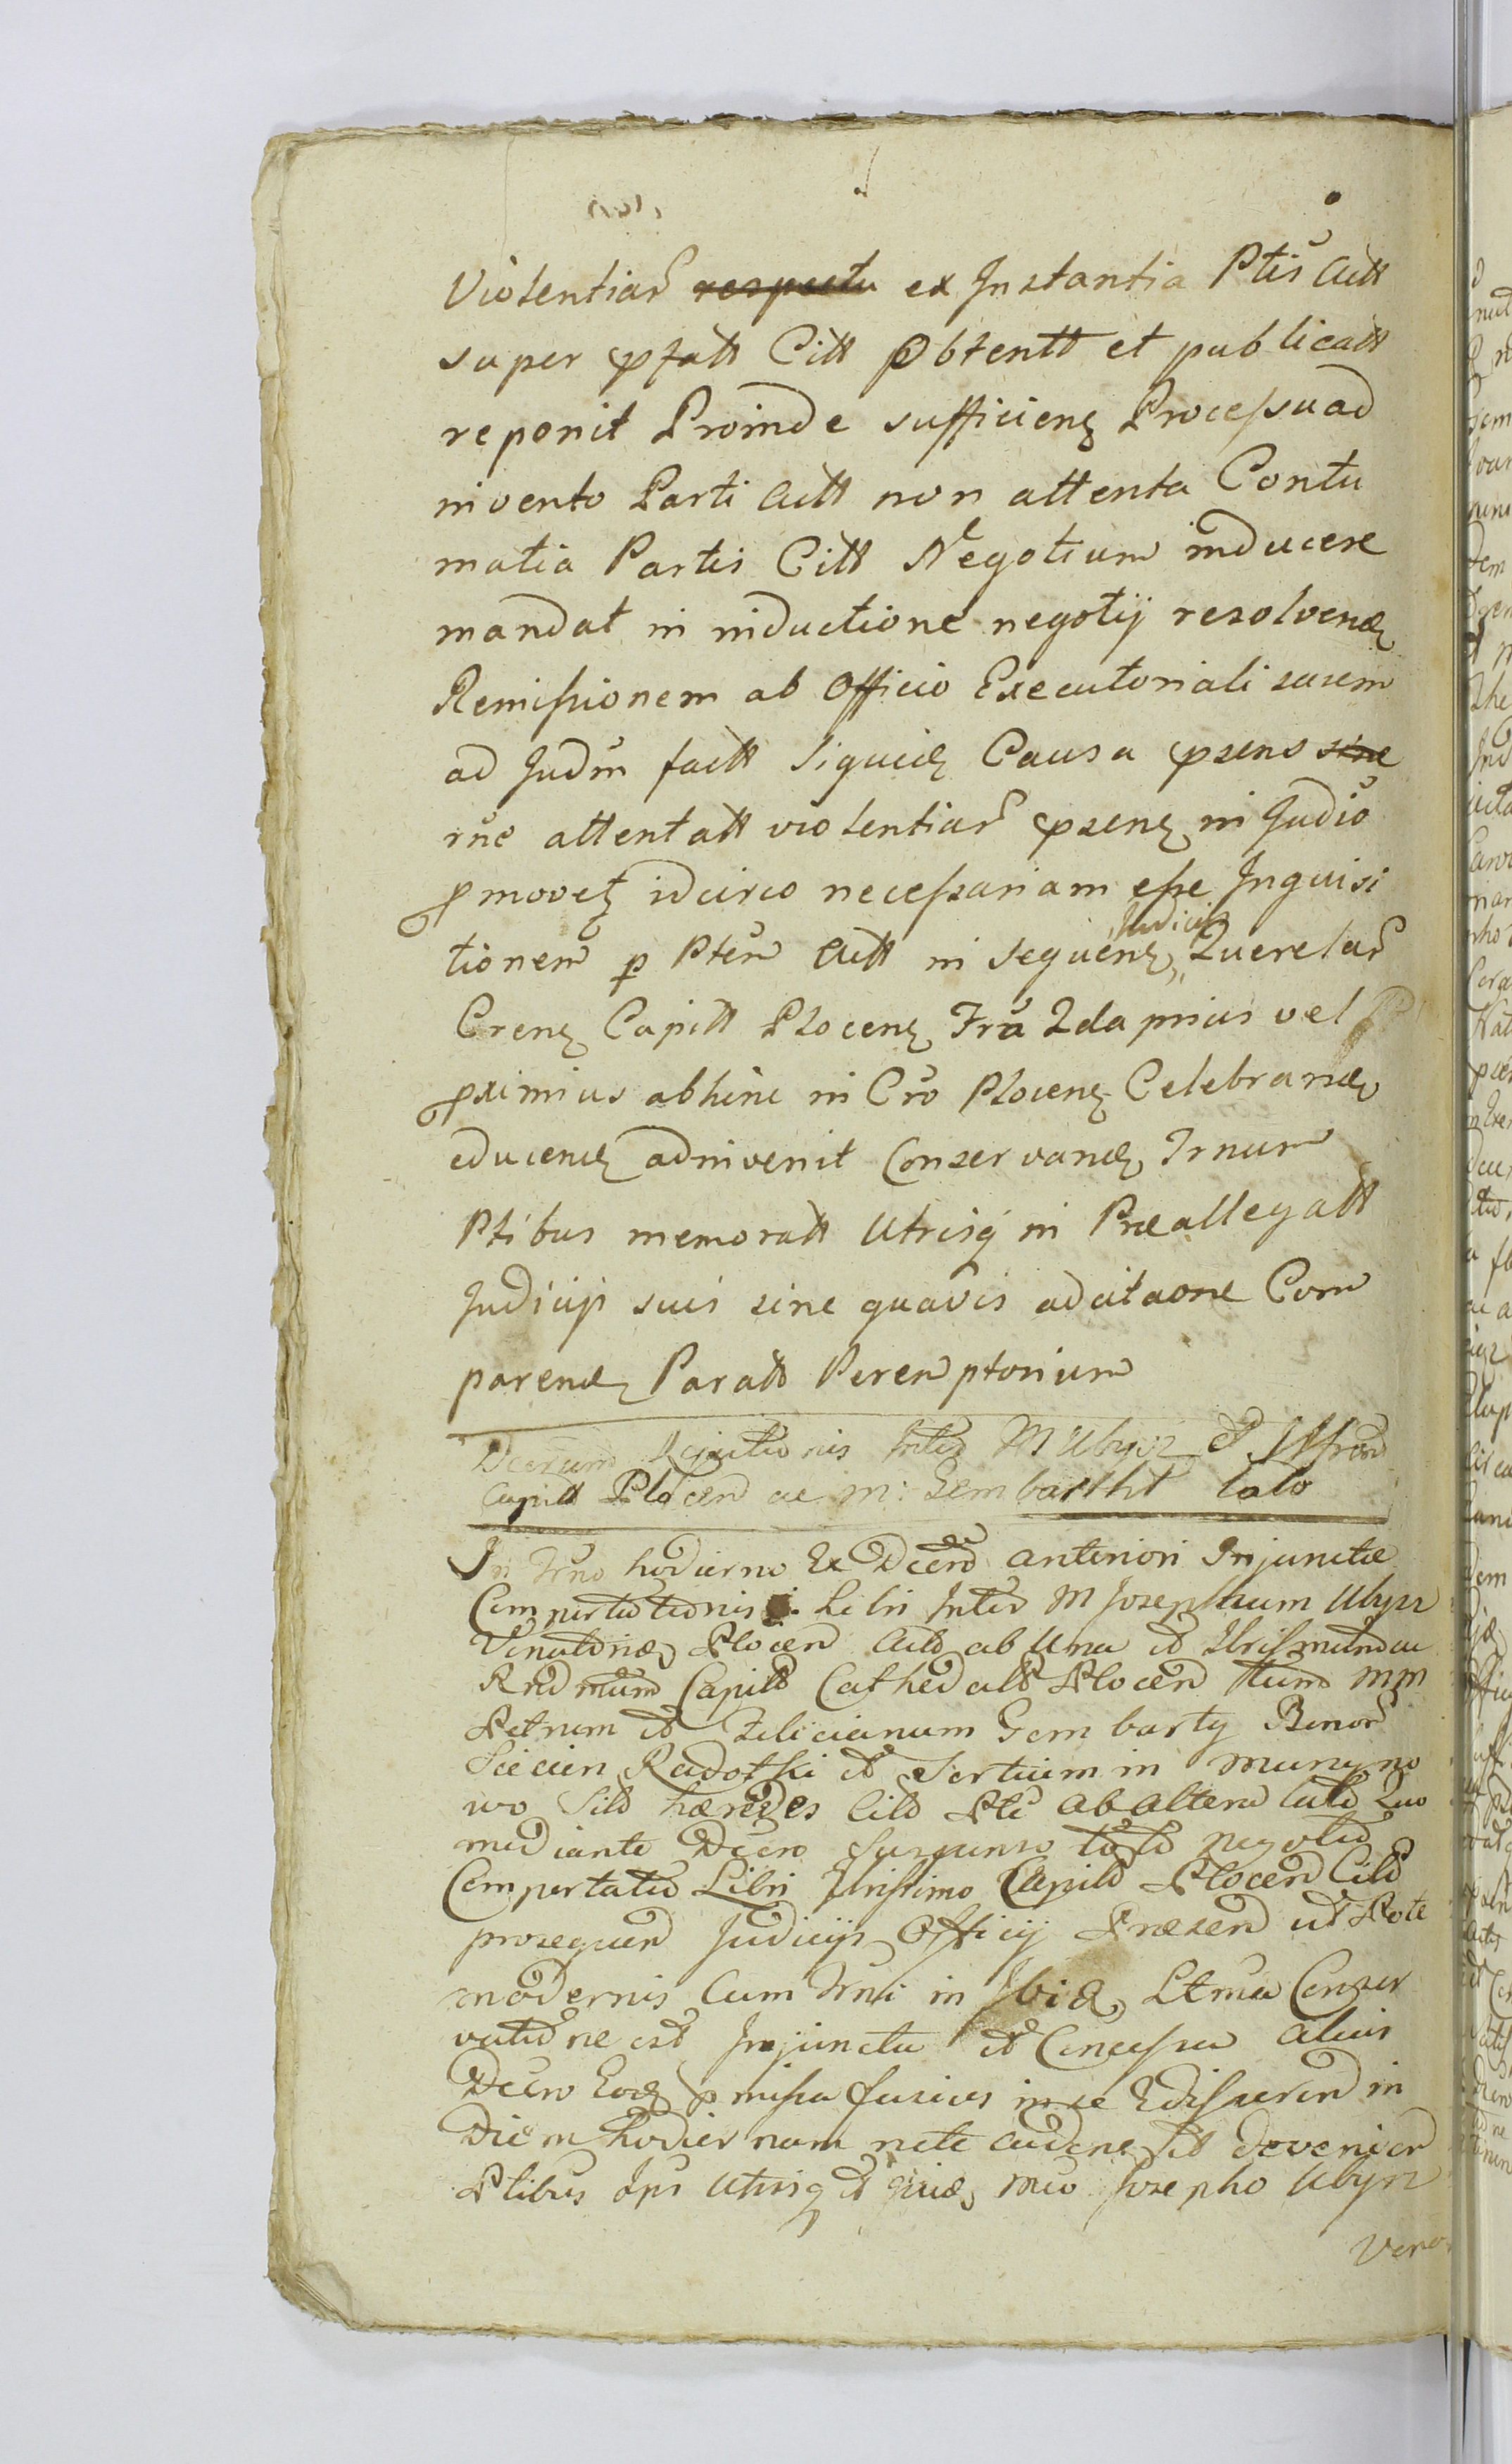 Violentiar̃ respectu ex Instantia Ptis Actt
super ꝓfatt Citt Obtentt et publicatt
reponit Proinde sufficienȝ Processu ad
invento Parti Actt non attenta Contu
matia Partis Citt Negotium inducere
mandat in inductione negotij resolvendȝ
Remissionem ab Officio Executoriali suem
ad Judm̃ factt siquidȝ Causa ꝓsens sine
rñe attentatt violentiar̃ ꝓsenȝ in Judio
ꝓmovetȝ idcirco necessariam esse Inquisi
tionem p Ptem Actt in sequenȝ Judicijs Querelar̃
Crenȝ Capitt Plocenȝ Fra 2da prius vel
ꝓximius abhinc in Cro Plocenȝ Celebrandȝ
educendȝ adinvenit Conservandȝ Trnum
Ptibus memoratt Utrisq̃ in Præallegatt
Judicijs suis sine quavis adcitaone Com
parendȝ Paratt Peremptorium
Decrum Rejectionis Inter M Ubysz et Illrem
Capitt Plocen ac M: Gembartht lato
In Trno hodierno Ex Dcero anteriori Injunctæ
Comportationis Libri Inter M Josephum Ubysz
Venatoriȝ Plocen Actt ab Una et Illrissimum ac
Rndmum Capitt Cathedalt Plocen tum MM
Petrum et Felicianum Gembarty Binor̃
Sciecien Radotki et Tertium in Munyno
wo Sitt hæredes Citt Pte ab altera lati Quo
mediante Dcero suspenso toto negotio
Comportatio Libri Illrissimo Capitt Plocen Citt
prosequen Judicijs Officij Præsen ut Pote
modernis Cum Trni in Ibidȝ Ltma Conser
vatione est Injuncta et Concessa alias
Dcero Eodȝ ꝓmissa fusius in se Edisseren in
Diem hodiernam nete cadene sit devenien
Ptibus Ipis Utrisq̃ et quidȝ Mco Josepho Ubysz
Vena